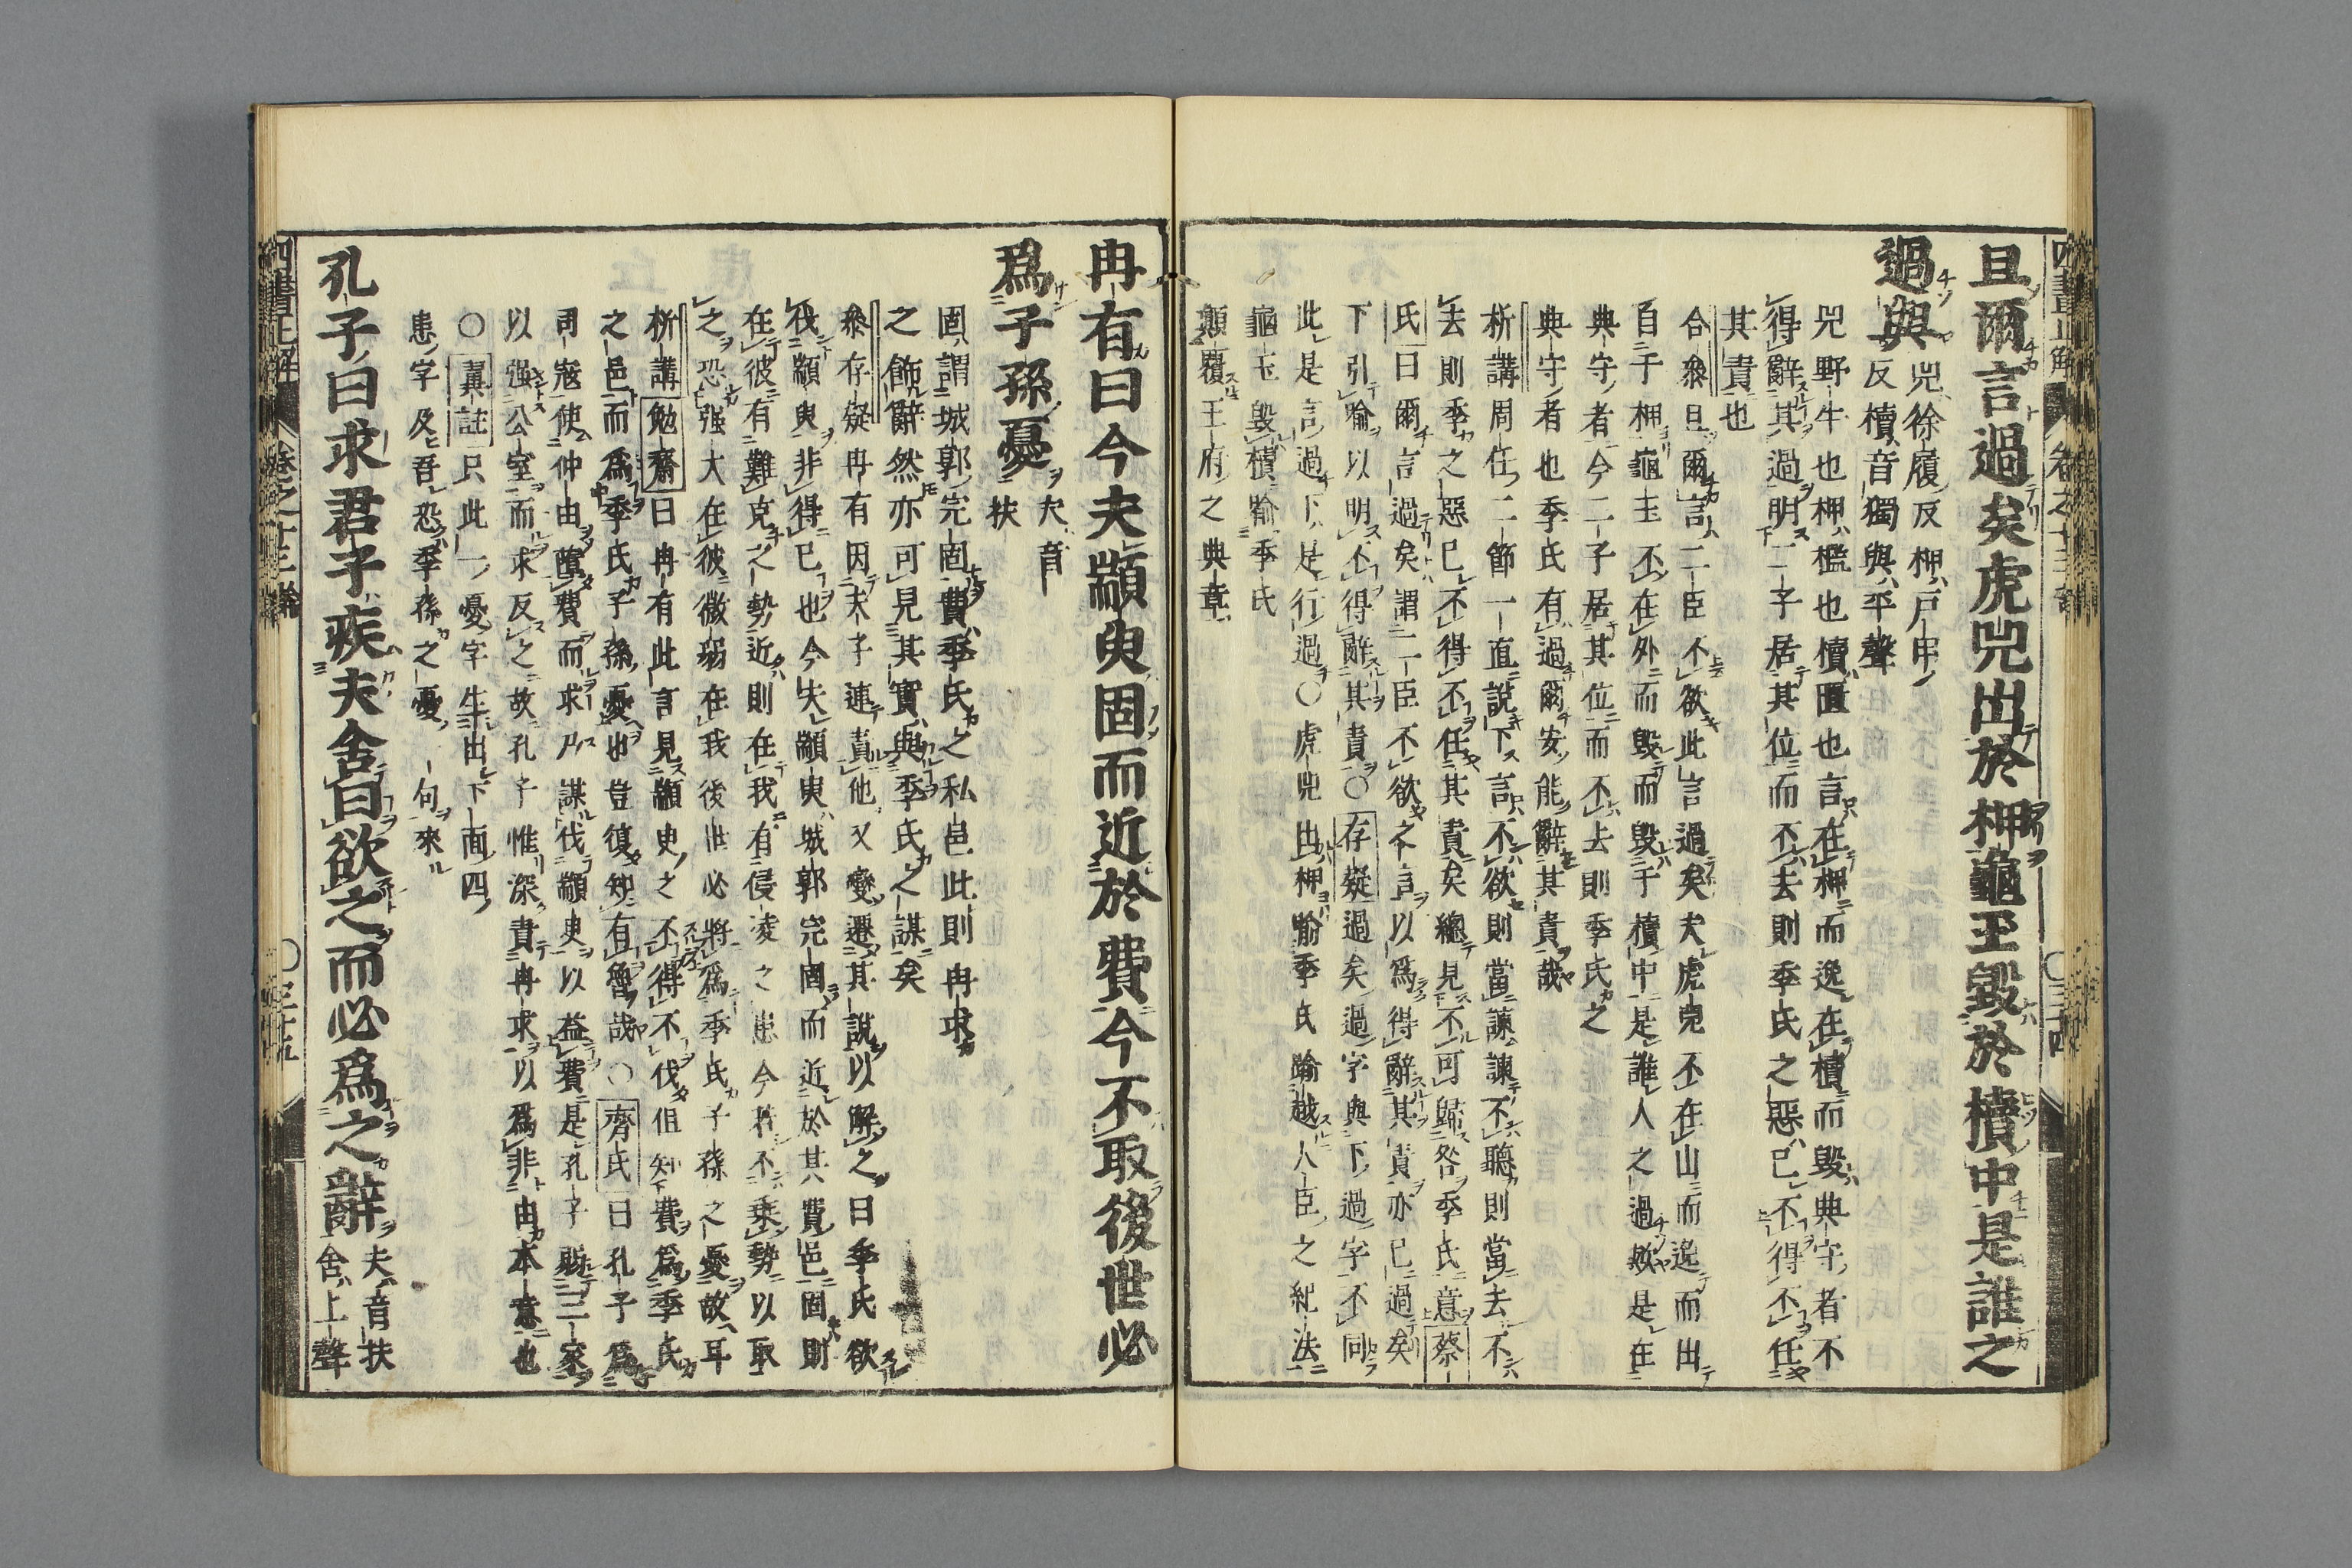 四書正解 卷之十三 論 〇三十四
且爾言過矣虎兕出於柙龜玉毀於櫝中是誰之
過與
兕徐履反柙戶甲
反櫝音獨與平聲
兕野牛也柙檻也櫝匱也言在柙而逸在櫝而毀典守者不
得辭其過明二子居其位而不去則季氏之惡已不得不任
其責也
合參且爾言二臣不欲此言過矣夫虎兕不在山而逸而出
自于柙龜玉不在外而毀而毀于櫝中是誰人之過歟是在
典守者今二子居其位而不去則季氏之
典守者也季氏有過爾安能辭其責哉
析講周任二節一直說下言不欲則當諫諫不聽則當去不
去則季之惡已不得不任其責矣總見不可歸咎季氏意蔡
氏曰爾言過矣謂二臣不欲之言以爲得辭其責亦已過矣
下引喻以明不得辭其責〇存疑過矣過字與下過字不同
此是言過下是行過〇虎兕出柙喻季氏踰越人臣之紀法
龜玉毀櫝喻季氏
顛覆王府之典章
冉有曰今夫顓臾固而近於費今不取後世必
爲子孫憂
夫音
扶
固謂城郭完固費季氏之私邑此則冉求
之飾辭然亦可見其實與季氏之謀矣
參存疑冉有因夫子連責他又變遷其說以解之曰季氏欲
伐顓臾非得已也今夫顓臾城郭完固而近於其費邑固則
在彼有難克之勢近則在我有侵凌之患今若不乘勢以取
之恐强大在彼微弱在我後世必將爲季氏子孫之憂故耳
析講勉齋曰冉有此言見顓臾之不得不伐但知費爲季氏
之邑而爲季氏子孫憂也豈復知有魯哉〇齊氏曰孔子爲
司寇使仲由墮費而求乃謀伐顓臾以益費是孔子賊三家
以强公室而求反之故孔子惟深責冉求以爲非由本意也
〇冀註只此一憂字生出下面四
患字及吾恐季孫之憂一句來
孔子曰求君子疾夫舍曰欲之而必爲之辭
夫音扶
舍上聲
四書正解 卷之十三 論 〇三十五